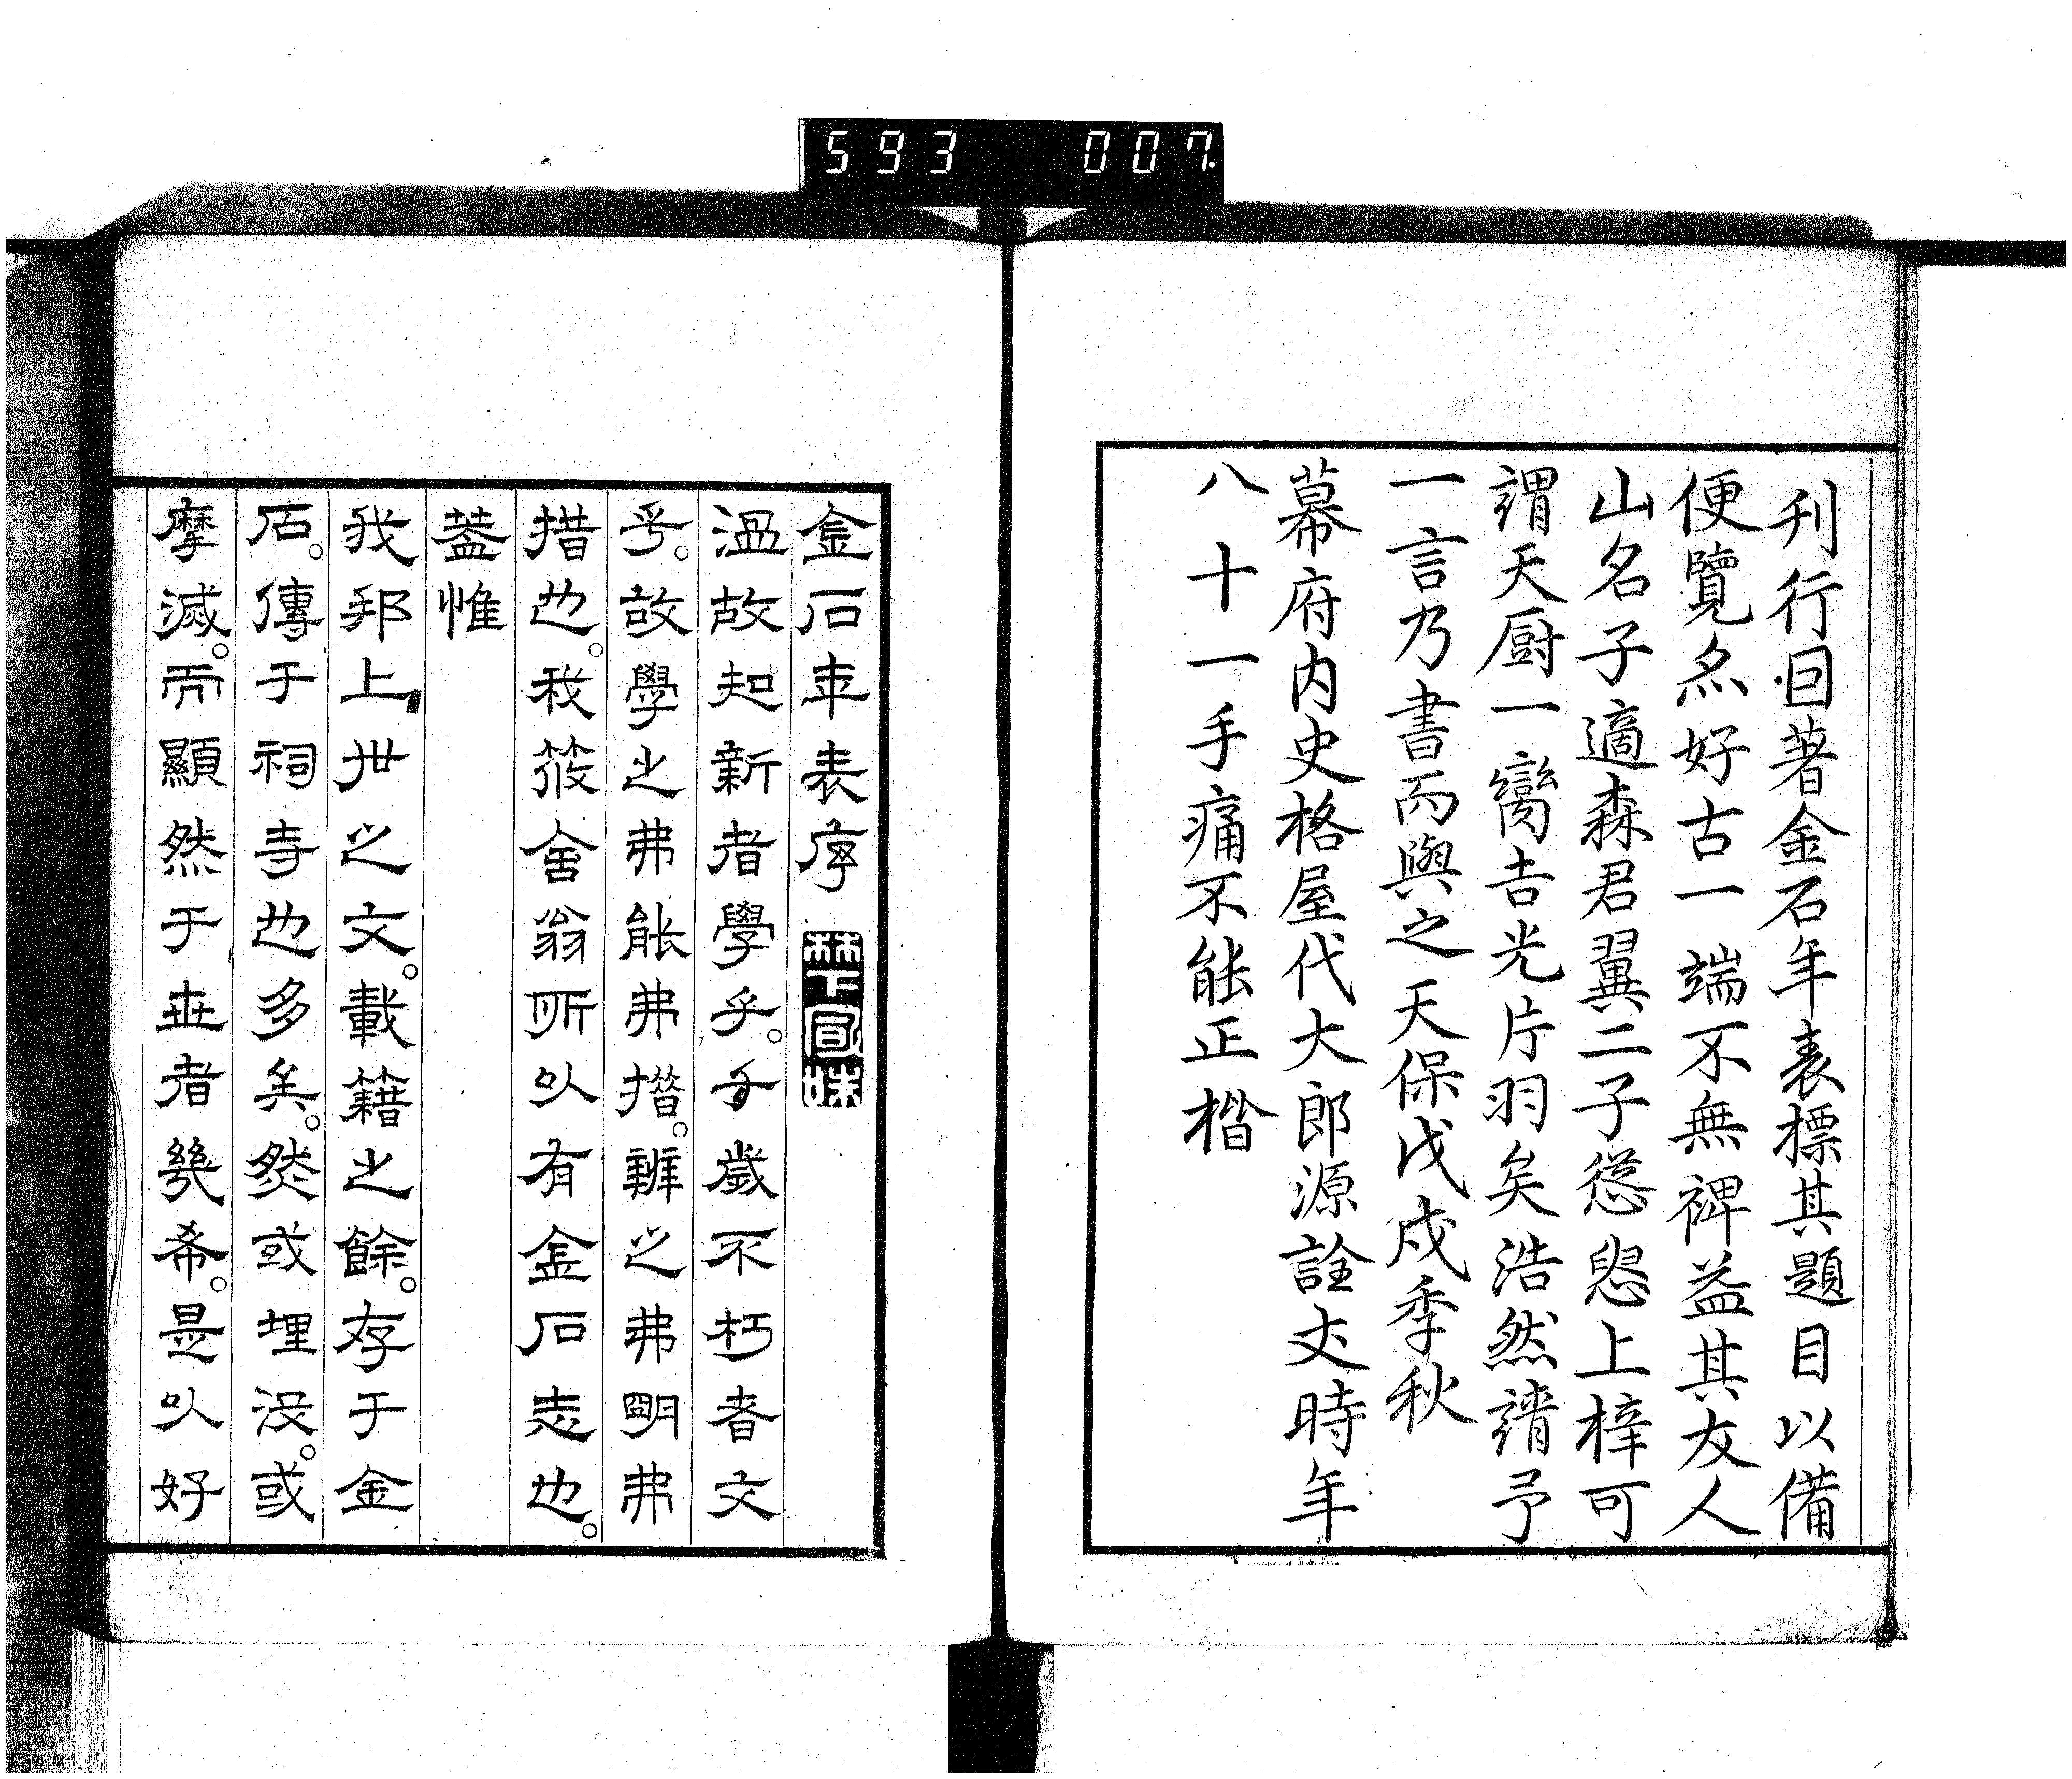 593 007
刊行因著金石年表標其題目以備
便覽烝好古一端不無裨益其友人
山名子適森君翼二子慫慂上梓可
謂天厨一臠吉光片羽矣浩然請予
一言乃書而與之天保戊戌季秋
幕府内史格屋代大郎源詮丈時年
八十一手痛不能正楷
金石年表序
溫故知新者學乎。千歲不朽者文
乎。故學之弗能弗措。辨之弗明弗
措也。我筱舍翁所以有金石志也。
蓋惟
我邦上世之文。載籍之餘。存于金
石。傳于祠寺也多矣。然或埋沒。或
摩滅。而顯然于世者幾希。是以好